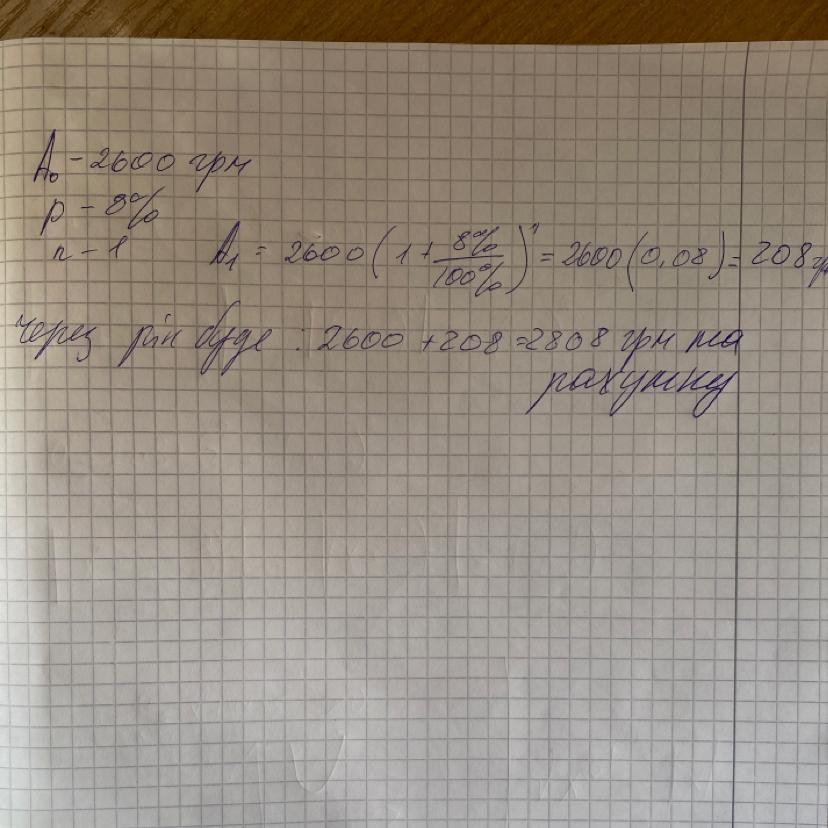 A₀ - 2600 грн
p - 8%
n - 1
A₁ = 2600 (1 + 8%/100%)¹ = 2600 (0,08) = 208 гр
через рік буде : 2600 + 208 = 2808 грн на
рахунку